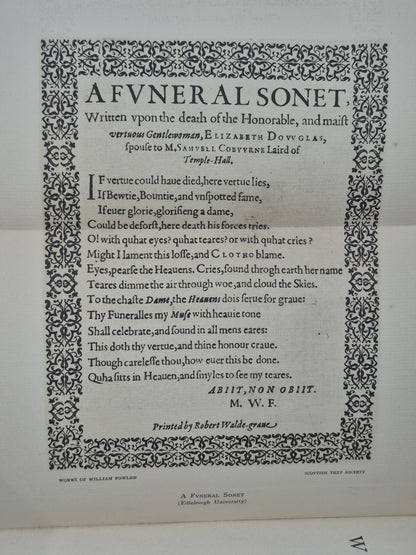 A FVNERAL SONET,
Written vpon the death of the Honorable, and maist
vertuous Gentlewoman, ELIZABETH DOVVGLAS,
spouse to M, SAMVELL COBVVRNE Laird of
Temple-Hall.
IF vertue could haue died, here vertue lies,
If Bewtie, Bountie, and vnspotted fame,
If euer glorie, glorifieng a dame,
Could be deforst, here death his forces tries.
O! with quhat eyes? quhat teares? or with quhat cries?
Might I lament this losse, and CLOTHO blame.
Eyes, pearse the Heauens. Cries, sound throgh earth her name
Teares dimme the air through woe, and cloud the Skies.
To the chaste Dame, the Heauens dois serue for graue:
Thy Funeralles my Muse with heauie tone
Shall celebrate, and sound in all mens eares:
This doth thy vertue, and thine honour craue.
Though carelesse thou, how euer this be done.
Quha sitts in Heauen, and smyles to see my teares.
ABIIT, NON OBIIT.
M. W. F.
Printed by Robert Walde-graue
WORKS OF WILLIAM FOWLER
SCOTTISH TEXT SOCIETY
A FVNERAL SONET
(Edinburgh University)
W